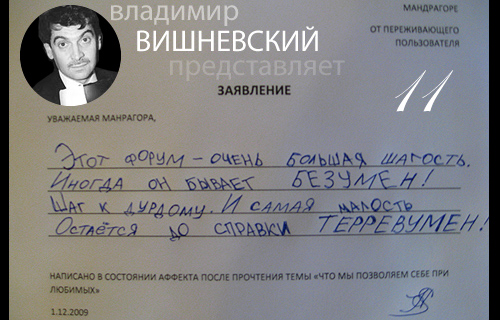 владимир
ВИШНЕВСКИЙ
представляет
МАНДРАГОРЕ
ОТ ПЕРЕЖИВАЮЩЕГО
ПОЛЬЗОВАТЕЛЯ
ЗАЯВЛЕНИЕ
11
УВАЖАЕМАЯ МАНРАГОРА,
ЭТОТ ФОРУМ – ОЧЕНЬ БОЛЬШАЯ ШАГОСТЬ.
ИНОГДА ОН БЫВАЕТ БЕЗУМЕН!
ШАГ К ДУРДОМУ. И САМАЯ МАЛОСТЬ
ОСТАЁТСЯ ДО СПРАВКИ ТЕРРЕВУМЕН!
НАПИСАНО В СОСТОЯНИИ АФФЕКТА ПОСЛЕ ПРОЧТЕНИЯ ТЕМЫ «ЧТО МЫ ПОЗВОЛЯЕМ СЕБЕ ПРИ
ЛЮБИМЫХ»
1.12.2009